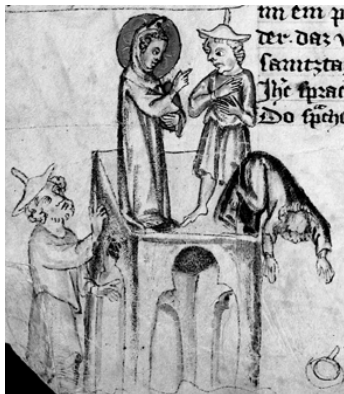 im ein p
der. daz v
samtzta
Jhc sprac
Do spche